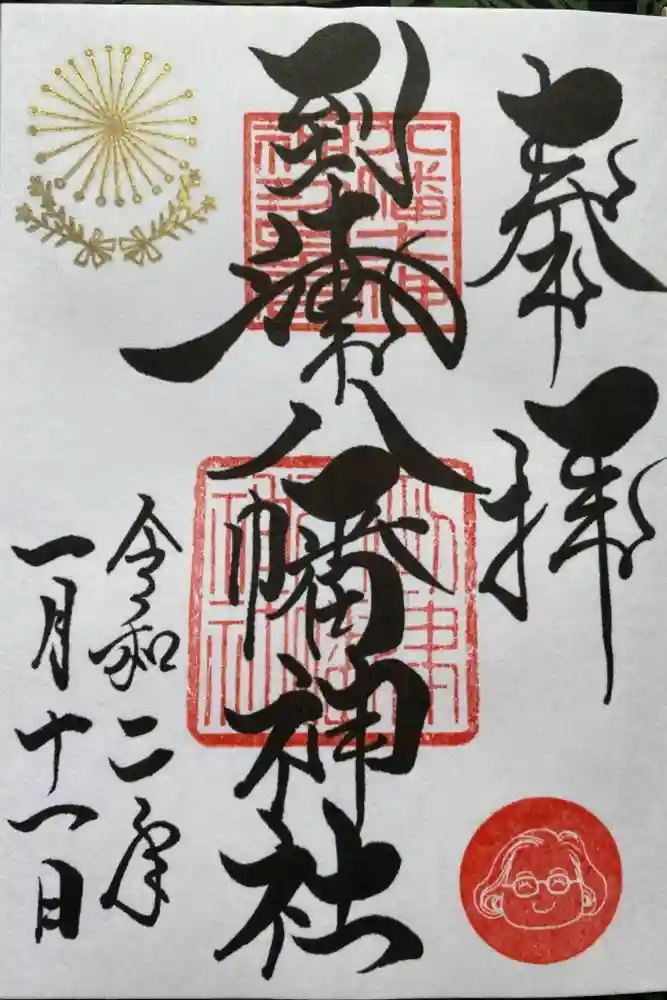 奉拝
到津八幡神社
令和二年
一月十一日